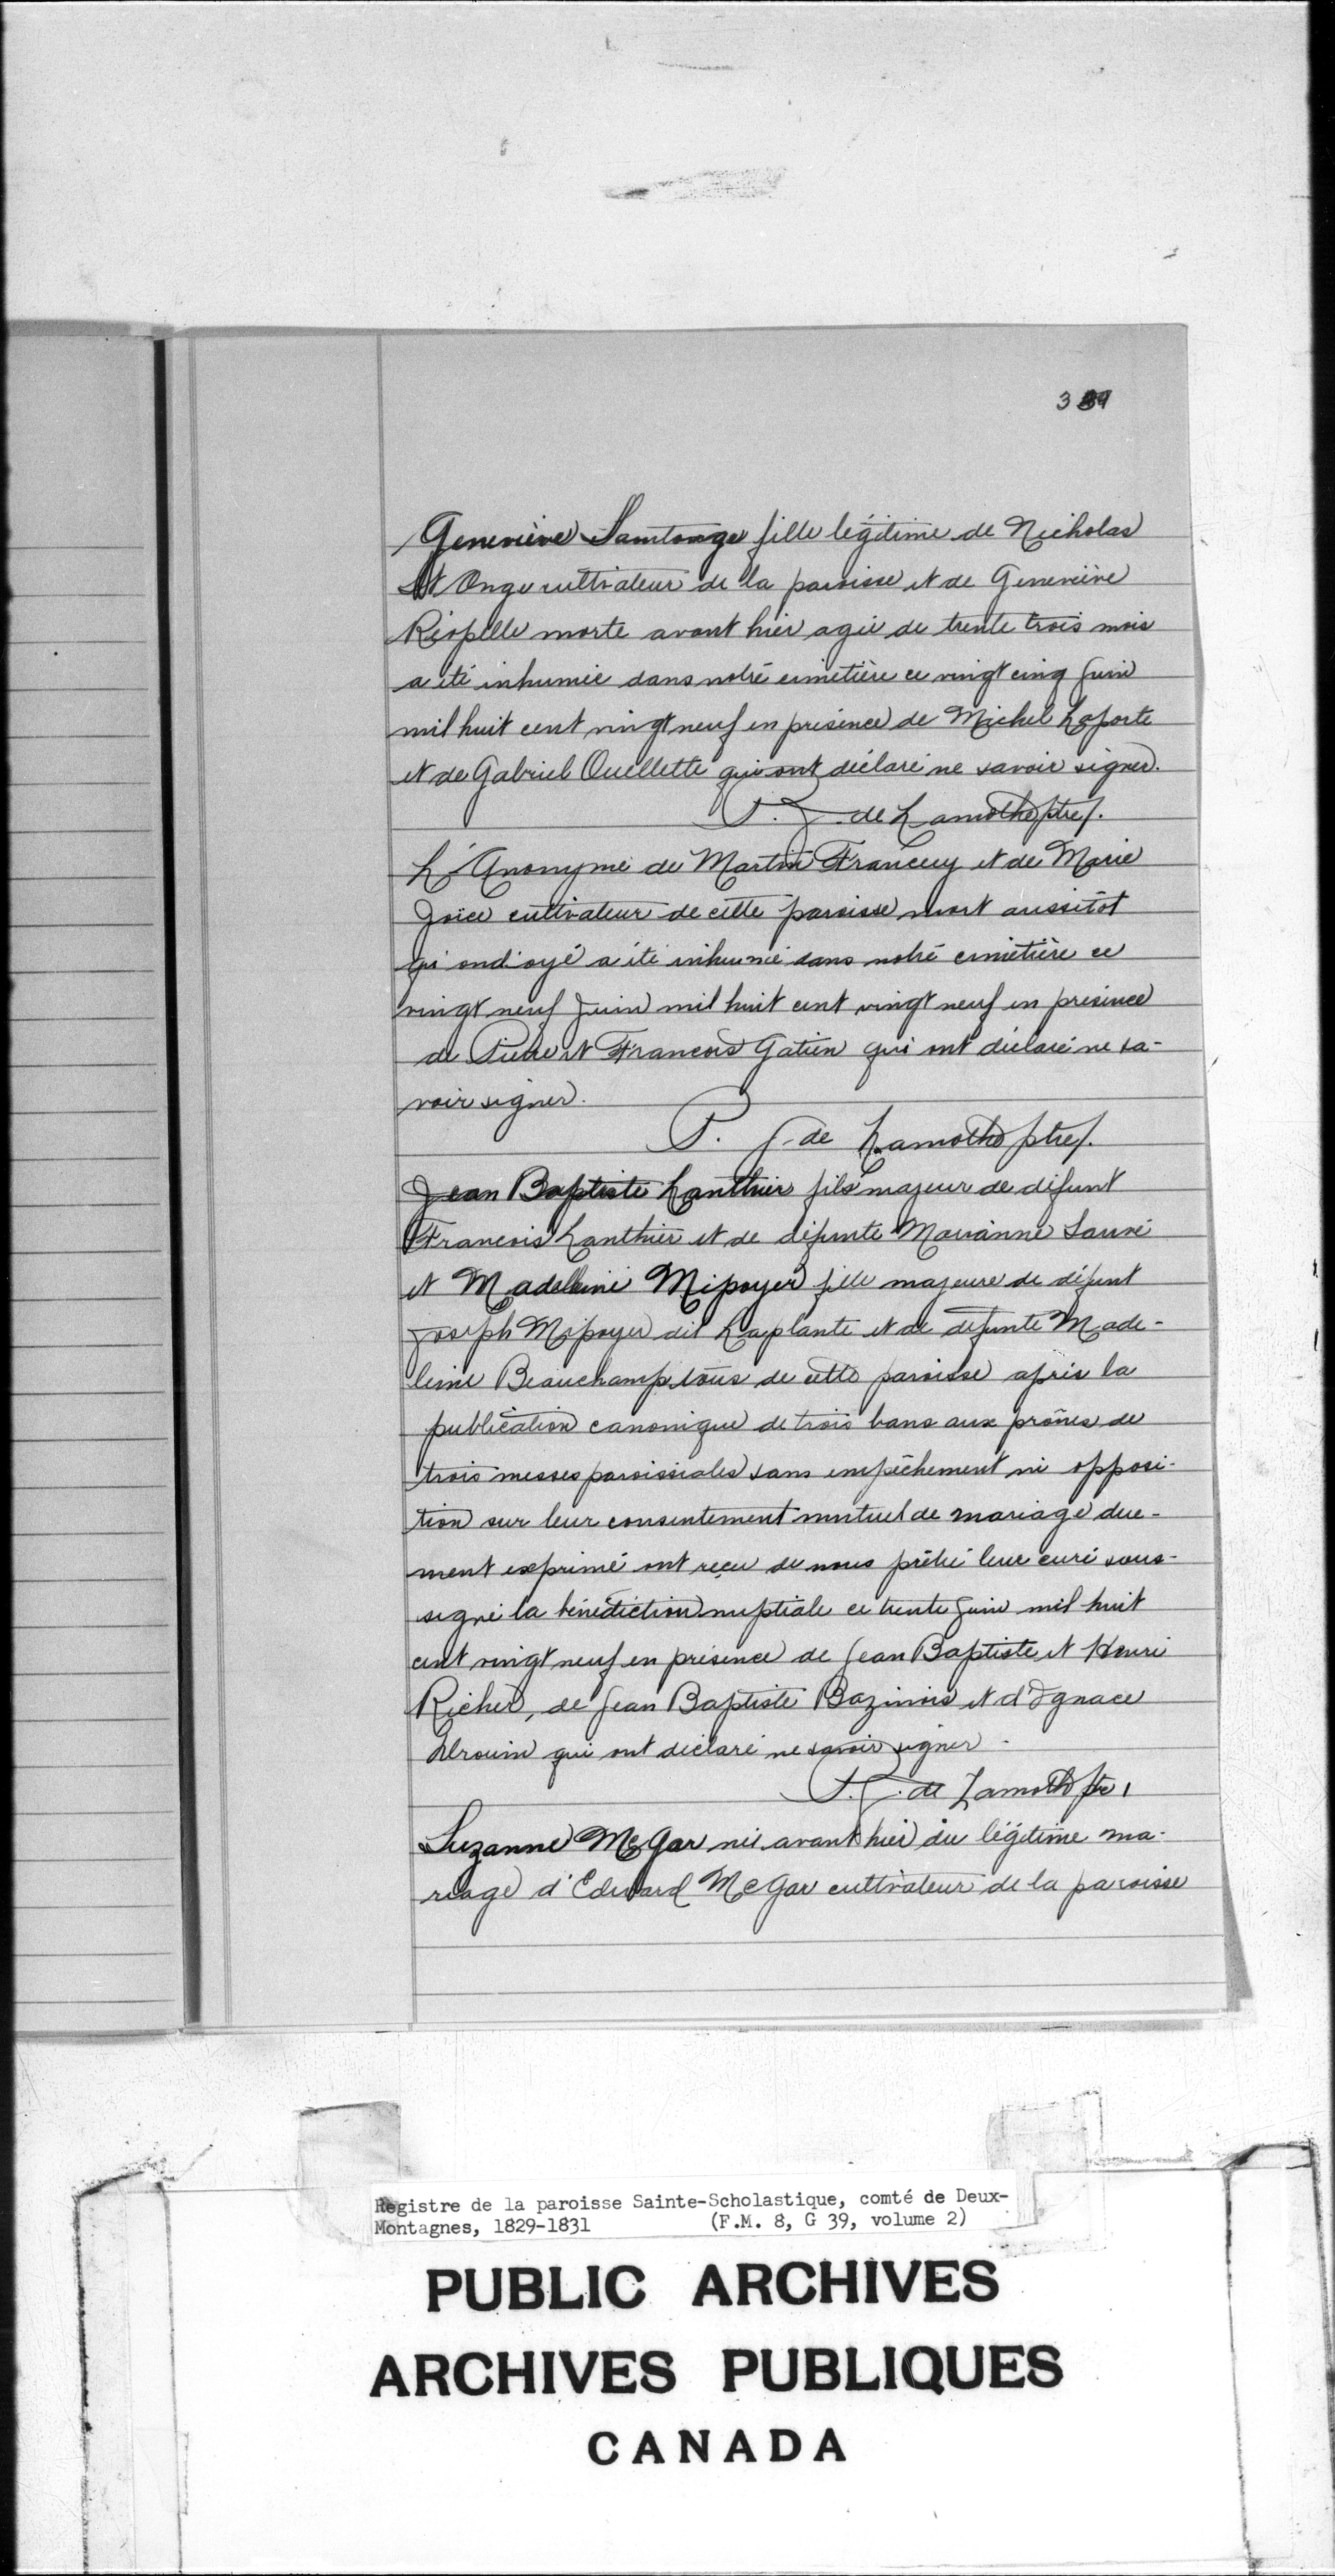 Geneviève Saintonge fille légitime de Nicholas
St Onge cultivateur de la paroisse et de Geneviève
Riopelle morte avant hier agée de trente trois mois
a été inhumée dans notre cimetière ce vingt cinq Juin
mil huit cent vingt neuf en présence de Michel Laporte
et de Gabriel Ouellette qui ont déclaré ne savoir signer.
P. J. de Lamothe ptre/.
L'Anonyme de Martin Francey et de Marie
Joice cultivateur de cette paroisse mort aussitôt
qu'ondoyé a été inhumé dans notre cimetière ce
vingt neuf Juin mil huit cent vingt neuf en présence
de Pierre et Francois Gatien qui ont déclaré ne sa-
voir signer.
P. J. de Lamothe ptre/.
Jean Baptiste Lanthier fils majeur de défunt
Francois Lanthier et de défunte Marianne Sauvé
et Madelleine Mipoyer fille majeure de défunt
Joseph Mipoyer dit Laplante et de défunte Made-
leine Beauchamp tous de cette paroisse après la
publication canonique de trois bans aux prônes de
trois messes paroissiales sans empêchement ni opposi-
tion sur leur consentement mutuel de mariage due-
ment exprimé ont reçu de nous prêtre leur curé sous-
signé la bénédiction nuptiale ce trente Juin mil huit
cent vingt neuf en présence de Jean Baptiste et Henri
Richer, de Jean Baptiste Bazinois et d'Ignace
qui ont déclaré ne savoir signer.
P. J. de Lamothe ptre/
Suzanne McGar née avant hier du légitime ma-
riage d'Edward McGar cultivateur de la paroisse
Registre de la paroisse Sainte-Scholastique, comté de Deux-
Montagnes, 1829-1831 (F.M. 8, G 39, volume 2)
PUBLIC ARCHIVES
ARCHIVES PUBLIQUES
CANADA